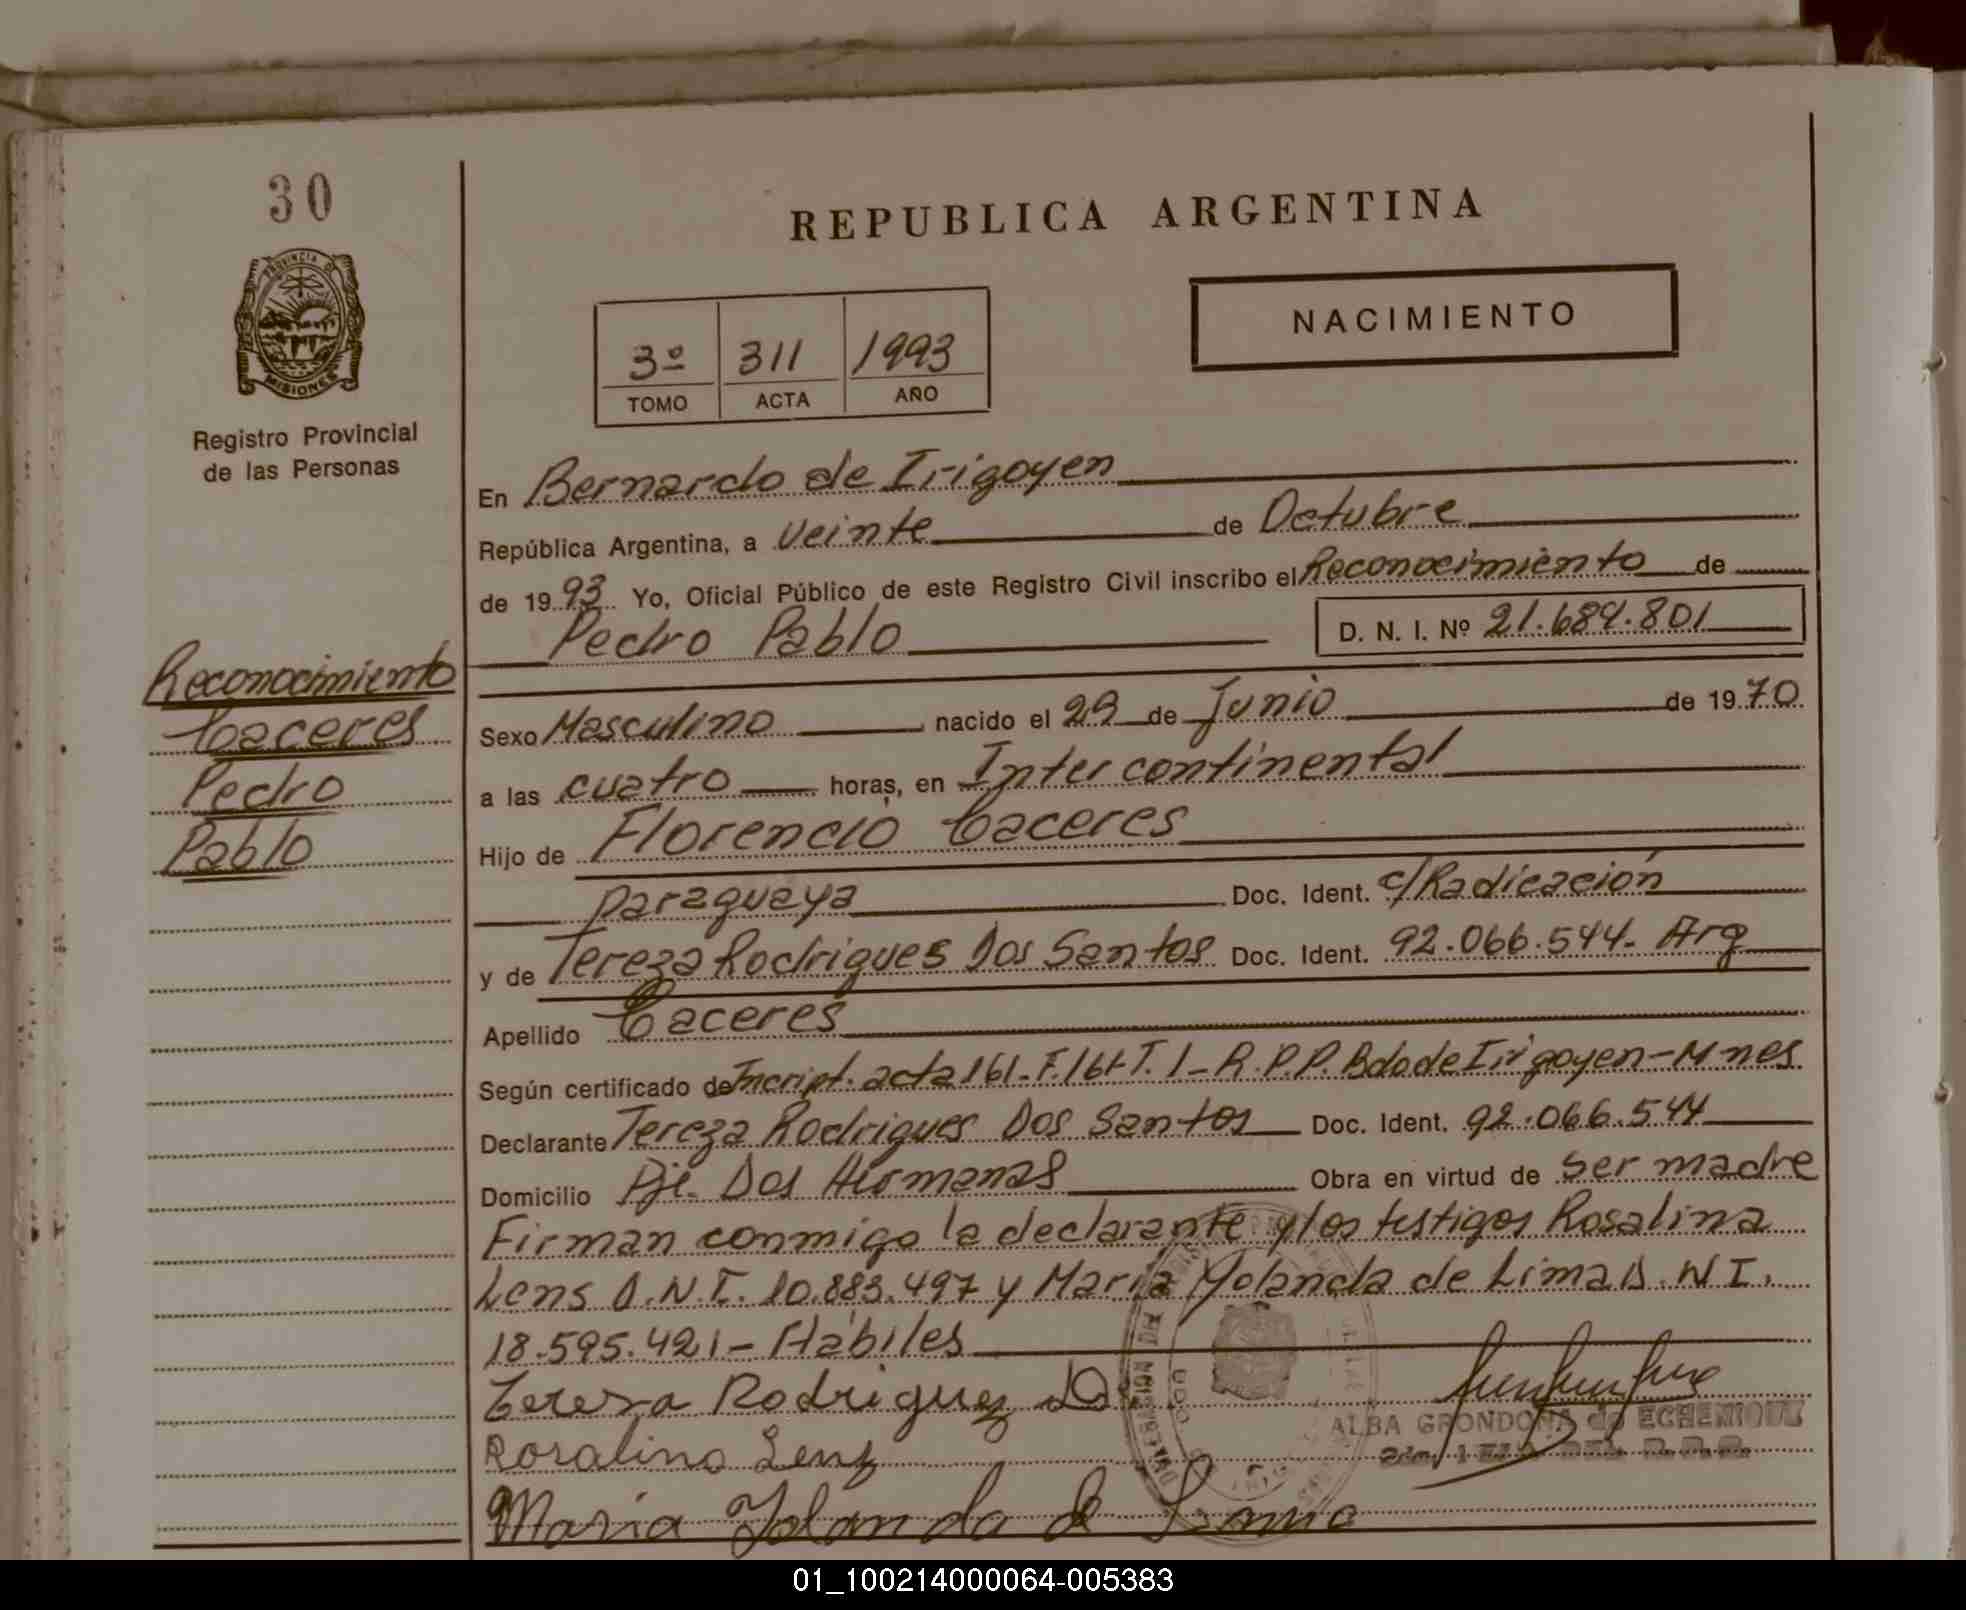 30
REPUBLICA ARGENTINA
PROVINCIA DE
MISIONES
Registro Provincial
de las Personas
NACIMIENTO
3º 311 1993
TOMO ACTA AÑO
En Bernardo de Irigoyen
República Argentina, a veinte de Octubre
de 1993 Yo, Oficial Público de este Registro Civil inscribo el Reconocimiento de
Pedro Pablo D. N. I. Nº 21.689.801
Reconocimiento
Caceres
Pedro
Pablo
Sexo Masculino nacido el 29 de Junio de 1970
a las cuatro horas, en Intercontinental
Hijo de Florencio Caceres
paraguaya Doc. Ident. c/Radicación
y de Tereza Rodrigues Dos Santos Doc. Ident. 92.066.544- Arg
Apellido Caceres
Según certificado de Incript. acta 161-F.161-T.1-R.P.P. Bdo de Irigoyen-Mnes
Declarante Tereza Rodrigues Dos Santos Doc. Ident. 92.066.544
Domicilio Pje. Dos Hermanas Obra en virtud de ser madre
Firman conmigo la declarante y los testigos Rosalina
Lens D.N.I. 10.883.497 y Maria Yolanda de Lima D.N.I.
18.595.421- Hábiles
Teresa Rodriguez D
ALBA GRONDONA de ECHENIQUE
Rosalino Lenz
Maria Yolanda de Lima
01_100214000064-005383